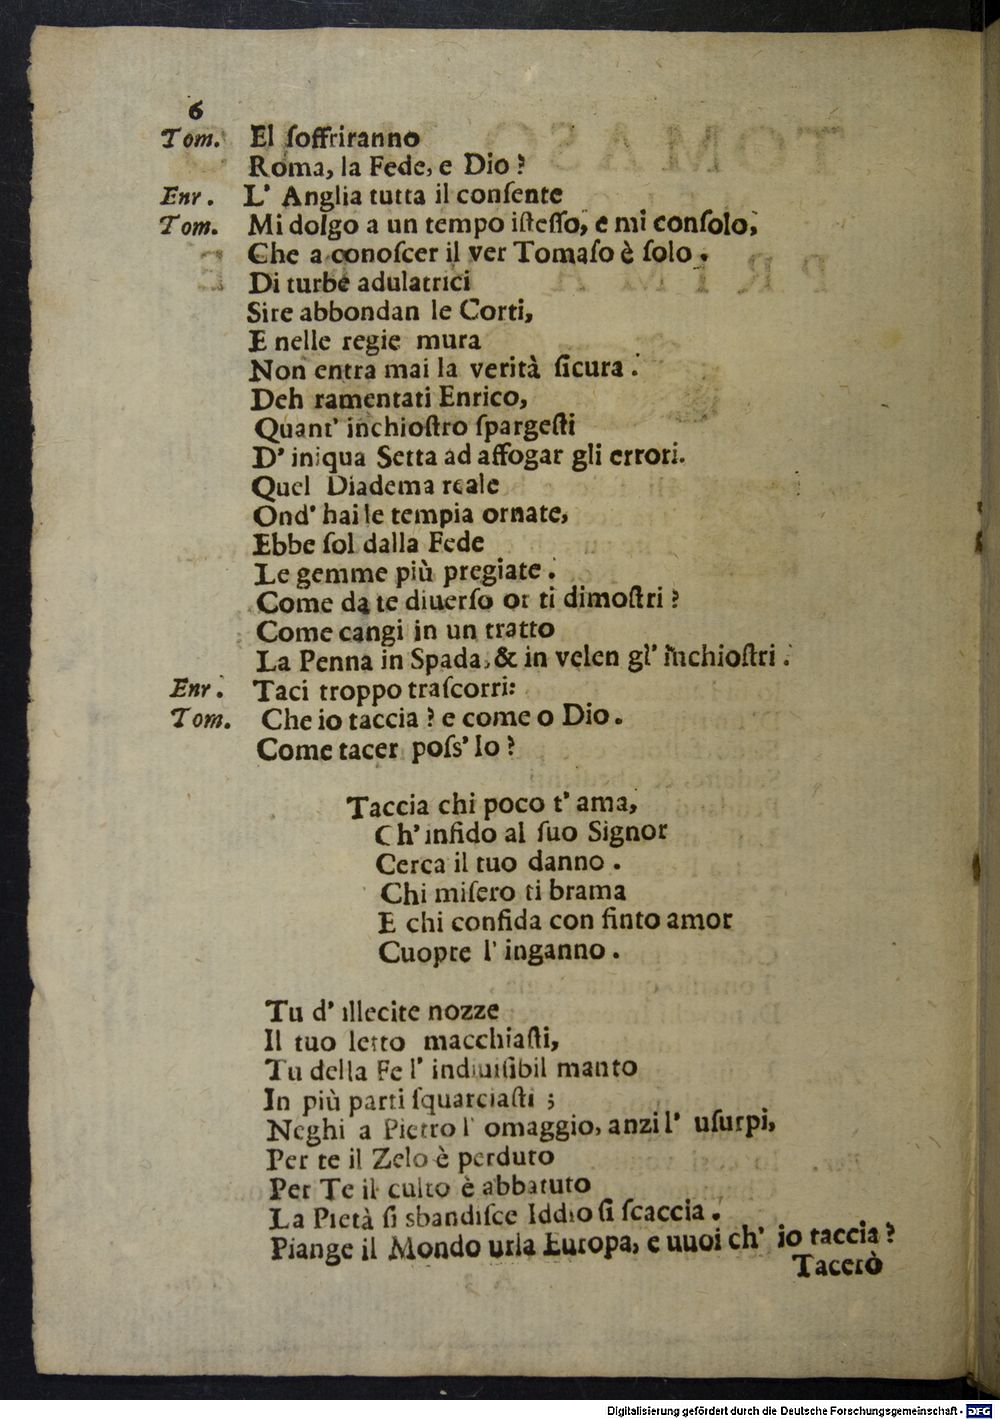 6
Tom. El ſoffriranno
Roma, la Fede, e Dio ?
Enr. L' Anglia tutta il conſente
Tom. Mi dolgo a un tempo iſteſſo, e mi conſolo,
Che a conoſcer il ver Tomaſo è ſolo .
Di turbe adulatrici
Sire abbondan le Corti,
E nelle regie mura
Non entra mai la verità ſicura .
Deh ramentati Enrico,
Quant' inchioſtro ſpargeſti
D' iniqua Setta ad affogar gli errori.
Quel Diadema reale
Ond' hai le tempia ornate,
Ebbe ſol dalla Fede
Le gemme più pregiate .
Come da te diuerſo or ti dimoſtri ?
Come cangi in un tratto
La Penna in Spada, & in velen gl' inchioſtri .
Enr. Taci troppo traſcorri:
Tom. Che io taccia ? e come o Dio .
Come tacer poſs' Io ?
Taccia chi poco t' ama,
Ch' infido al ſuo Signor
Cerca il tuo danno .
Chi miſero ti brama
E chi confida con finto amor
Cuopre l' inganno .
Tu d' illecite nozze
Il tuo letto macchiaſti,
Tu della Fe l' indiuiſibil manto
In più parti ſquarciaſti ;
Neghi a Pietro l' omaggio, anzi l' uſurpi,
Per te il Zelo è perduto
Per Te il culto è abbatuto
La Pietà ſi sbandiſce Iddio ſi ſcaccia .
Piange il Mondo urla Europa, e uuoi ch' io taccia ?
Tacerò
Digitalisierung gefördert durch die Deutsche Forschungsgemeinschaft - DFG